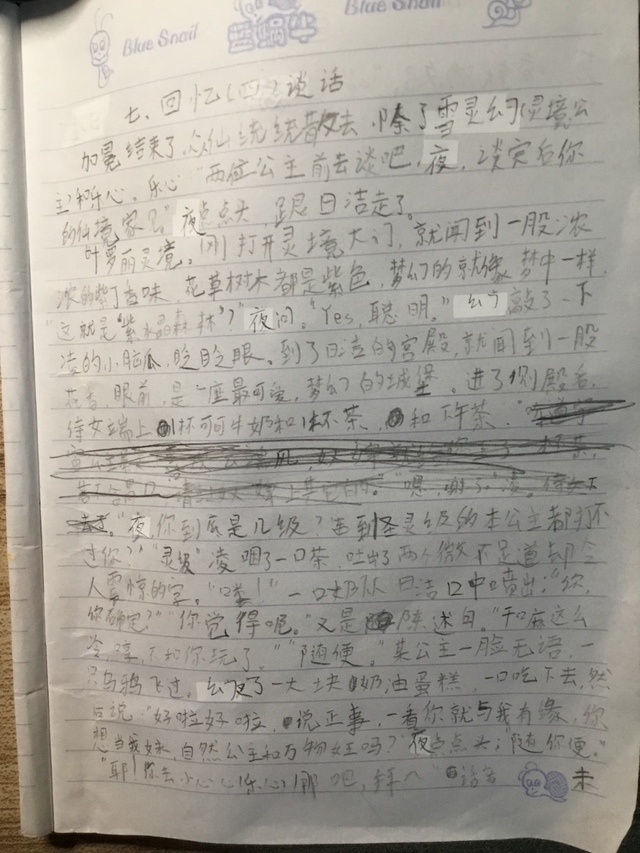 Blue Snail 蓝蜗牛 Blue Snail
七、回忆(四)谈话
加冕结束了,众仙统统散去,除了雪灵幻灵境公
主和乐心。乐心"两位公主前去谈吧,夜,谈完后你
的仙境家见"夜点点头 跟日洁走了。
叶萝丽灵境。刚打开灵境大门,就闻到一股浓
浓的紫丁香味,花草树木都是紫色,梦幻的就像梦中一样,
"这就是'紫水晶森林'?"夜问。"Yes,聪明。"幻敲了一下
凌的小脑瓜,眨眨眼。到了日洁的宫殿,就闻到一股
花香,眼前,是一座最可爱,梦幻的城堡。进了侧殿后,
侍女端上1杯可可牛奶和1杯茶,和下午茶。
"嗯,谢了"凌
"夜,你到底是几级?连到怪灵级的本公主都打不
过你?""灵级"凌咽了一口茶,吐出了两个微不足道却令
人震惊的字。"噗!"一口奶从日洁口中喷出:"你,
你确定?""你觉得呢。"又是陈述句。"干嘛这么
冷,哼,不和你玩了。""随便。"某公主一脸无语,一
只乌鸦飞过,幻切了一大块奶油蛋糕,一口吃下去,然
后说"好啦好啦,说正事,一看你就与我有缘,你
想当我妹,自然公主和万物女王吗?"夜点点头:"随你便。"
"耶!你去小心(乐心)那吧,拜"